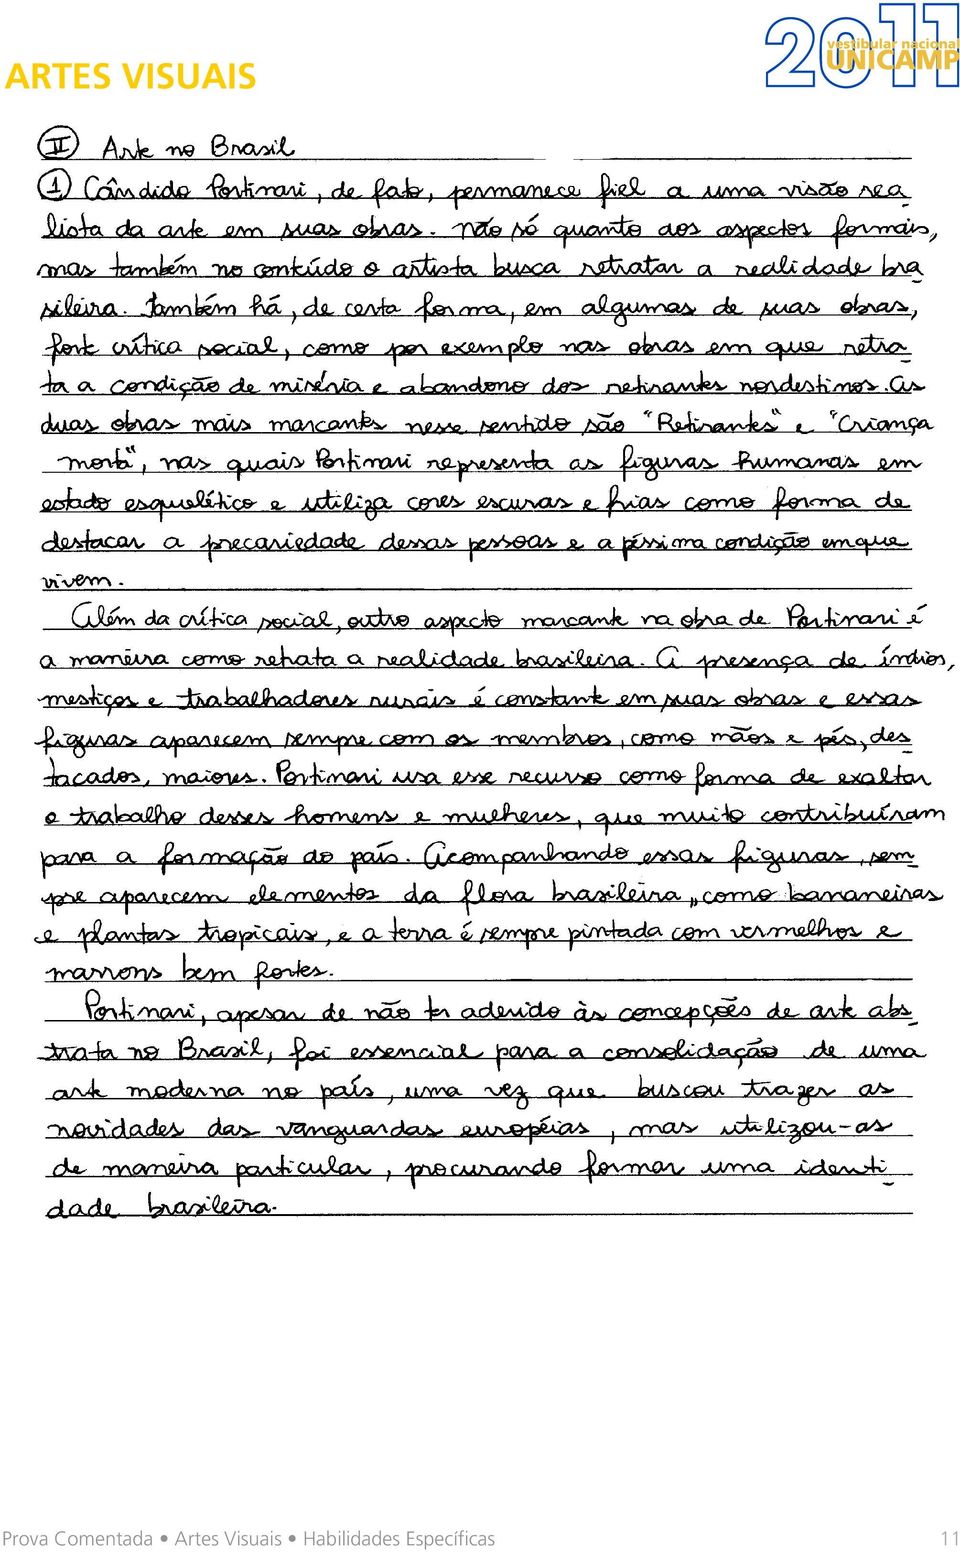 ARTES VISUAIS
2011
vestibular nacional
UNICAMP
II Arte no Brasil
1 Cândido Portinari, de fato, permanece fiel a uma visão rea_
lista da arte em suas obras. não só quanto aos aspectos formais,
mas também no conteúdo o artista busca retratar a realidade bra_
sileira. Também há, de certa forma, em algumas de suas obras,
forte crítica social, como por exemplo nas obras em que retra_
ta a condição de miséria e abandono dos retirantes nordestinos. As
duas obras mais marcantes nesse sentido são "Retirantes" e "Criança
morta", nas quais Portinari representa as figuras humanas em
estado esquelético e utiliza cores escuras e frias como forma de
destacar a precariedade dessas pessoas e a péssima condição em que
vivem.
Além da crítica social, outro aspecto marcante na obra de Portinari é
a maneira como retrata a realidade brasileira. A presença de índios,
mestiços e trabalhadores rurais é constante em suas obras e essas
figuras aparecem sempre com os membros, como mãos e pés, des_
tacados, maiores. Portinari usa esse recurso como forma de exaltar
o trabalho desses homens e mulheres, que muito contribuíram
para a formação do país. Acompanhando essas figuras, sem_
pre aparecem elementos da flora brasileira, como bananeiras
e plantas tropicais, e a terra é sempre pintada com vermelhos e
marrons bem fortes.
Portinari, apesar de não ter aderido às concepções de arte abs_
trata no Brasil, foi essencial para a consolidação de uma
arte moderna no país, uma vez que buscou trazer as
novidades das vanguardas européias, mas utilizou-as
de maneira particular, procurando formar uma identi_
dade brasileira.
Prova Comentada • Artes Visuais • Habilidades Específicas 11